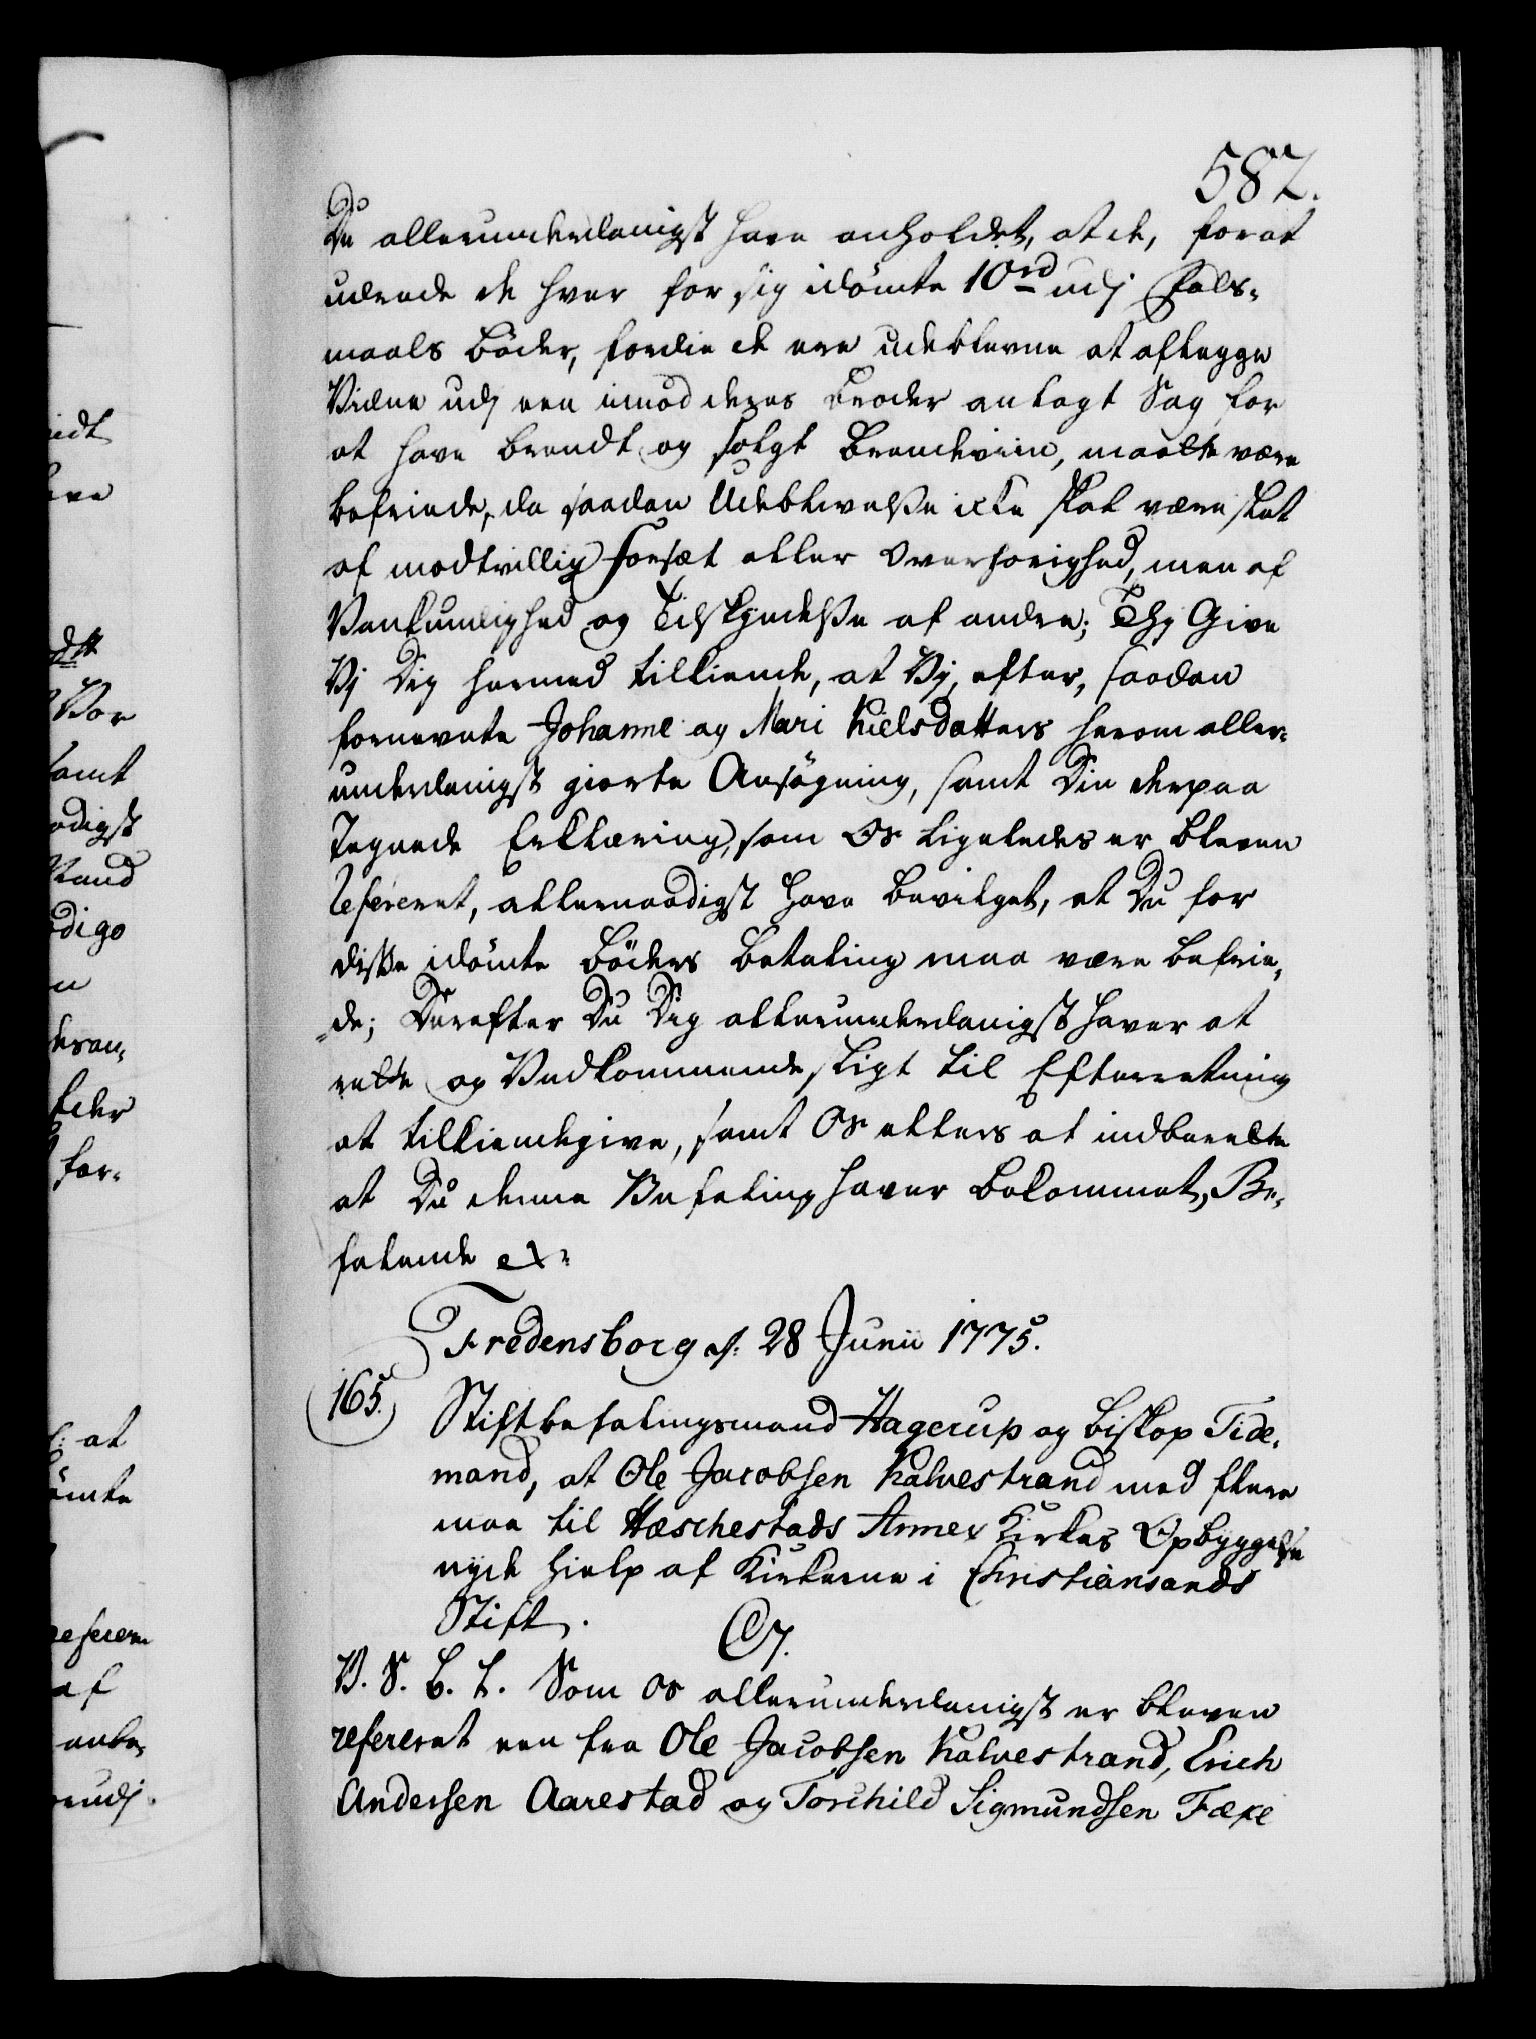 582.
Du allerunderdanigst have anholdet, at de, for at
udrede de hver for sig idömte 10 rd udj Fals-
maals Böder, fordie de ere udeblevne at aflegge
Vidne udj een imod deres Broder anlagt Sag for
at have brendt og solgt Brendeviin, maatte være
befriede, da saadan Udeblivelse icke skal være skeet
af modtvillig Forsæt eller Overhørighed, men af
Vankundighed og Tilskyndelse af andre; Thj Give
Vj Dig hermed tilkiende, at Vj, efter, saadan
fornevnte Johanne og Mari Nielsdatters herom aller-
underdanigst giorte Ansøgning, samt Din derpaa
tegnede Erklæring, som Os ligeledes er bleven
refereret, allernaadigst have bevilget, at Du for
disse idömte Böders Betaling maa være befrie-
de; Derefter Du Dig allerunderdanigst haver at
rette og Vedkommende sligt til Efterretning
at tilkiendegive, samt Os ellers at indberette
at Du denne Befaling haver bekommet, Be-
falende ex-
Fredensborg d. 28 Junii 1775.
165. Stiftbefalingsmand Hagerup og Biskop Tide-
mand, at Ole Jacobsen Kalvestrand med flere
maa til Hæschestads Annex Kirkes Opbyggelse
nyde Hielp af Kirkerne i Christiansands
Stift.
C7.
V. S. B. T. Som Os allerunderdanigst er bleven
refereret een fra Ole Jacobsen Kalvestrand, Erich
Andersen Aarestad og Torchild Sigmundsen Fæxe